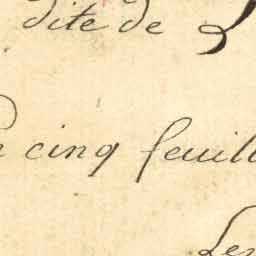 dite de
cinq feuill
Le